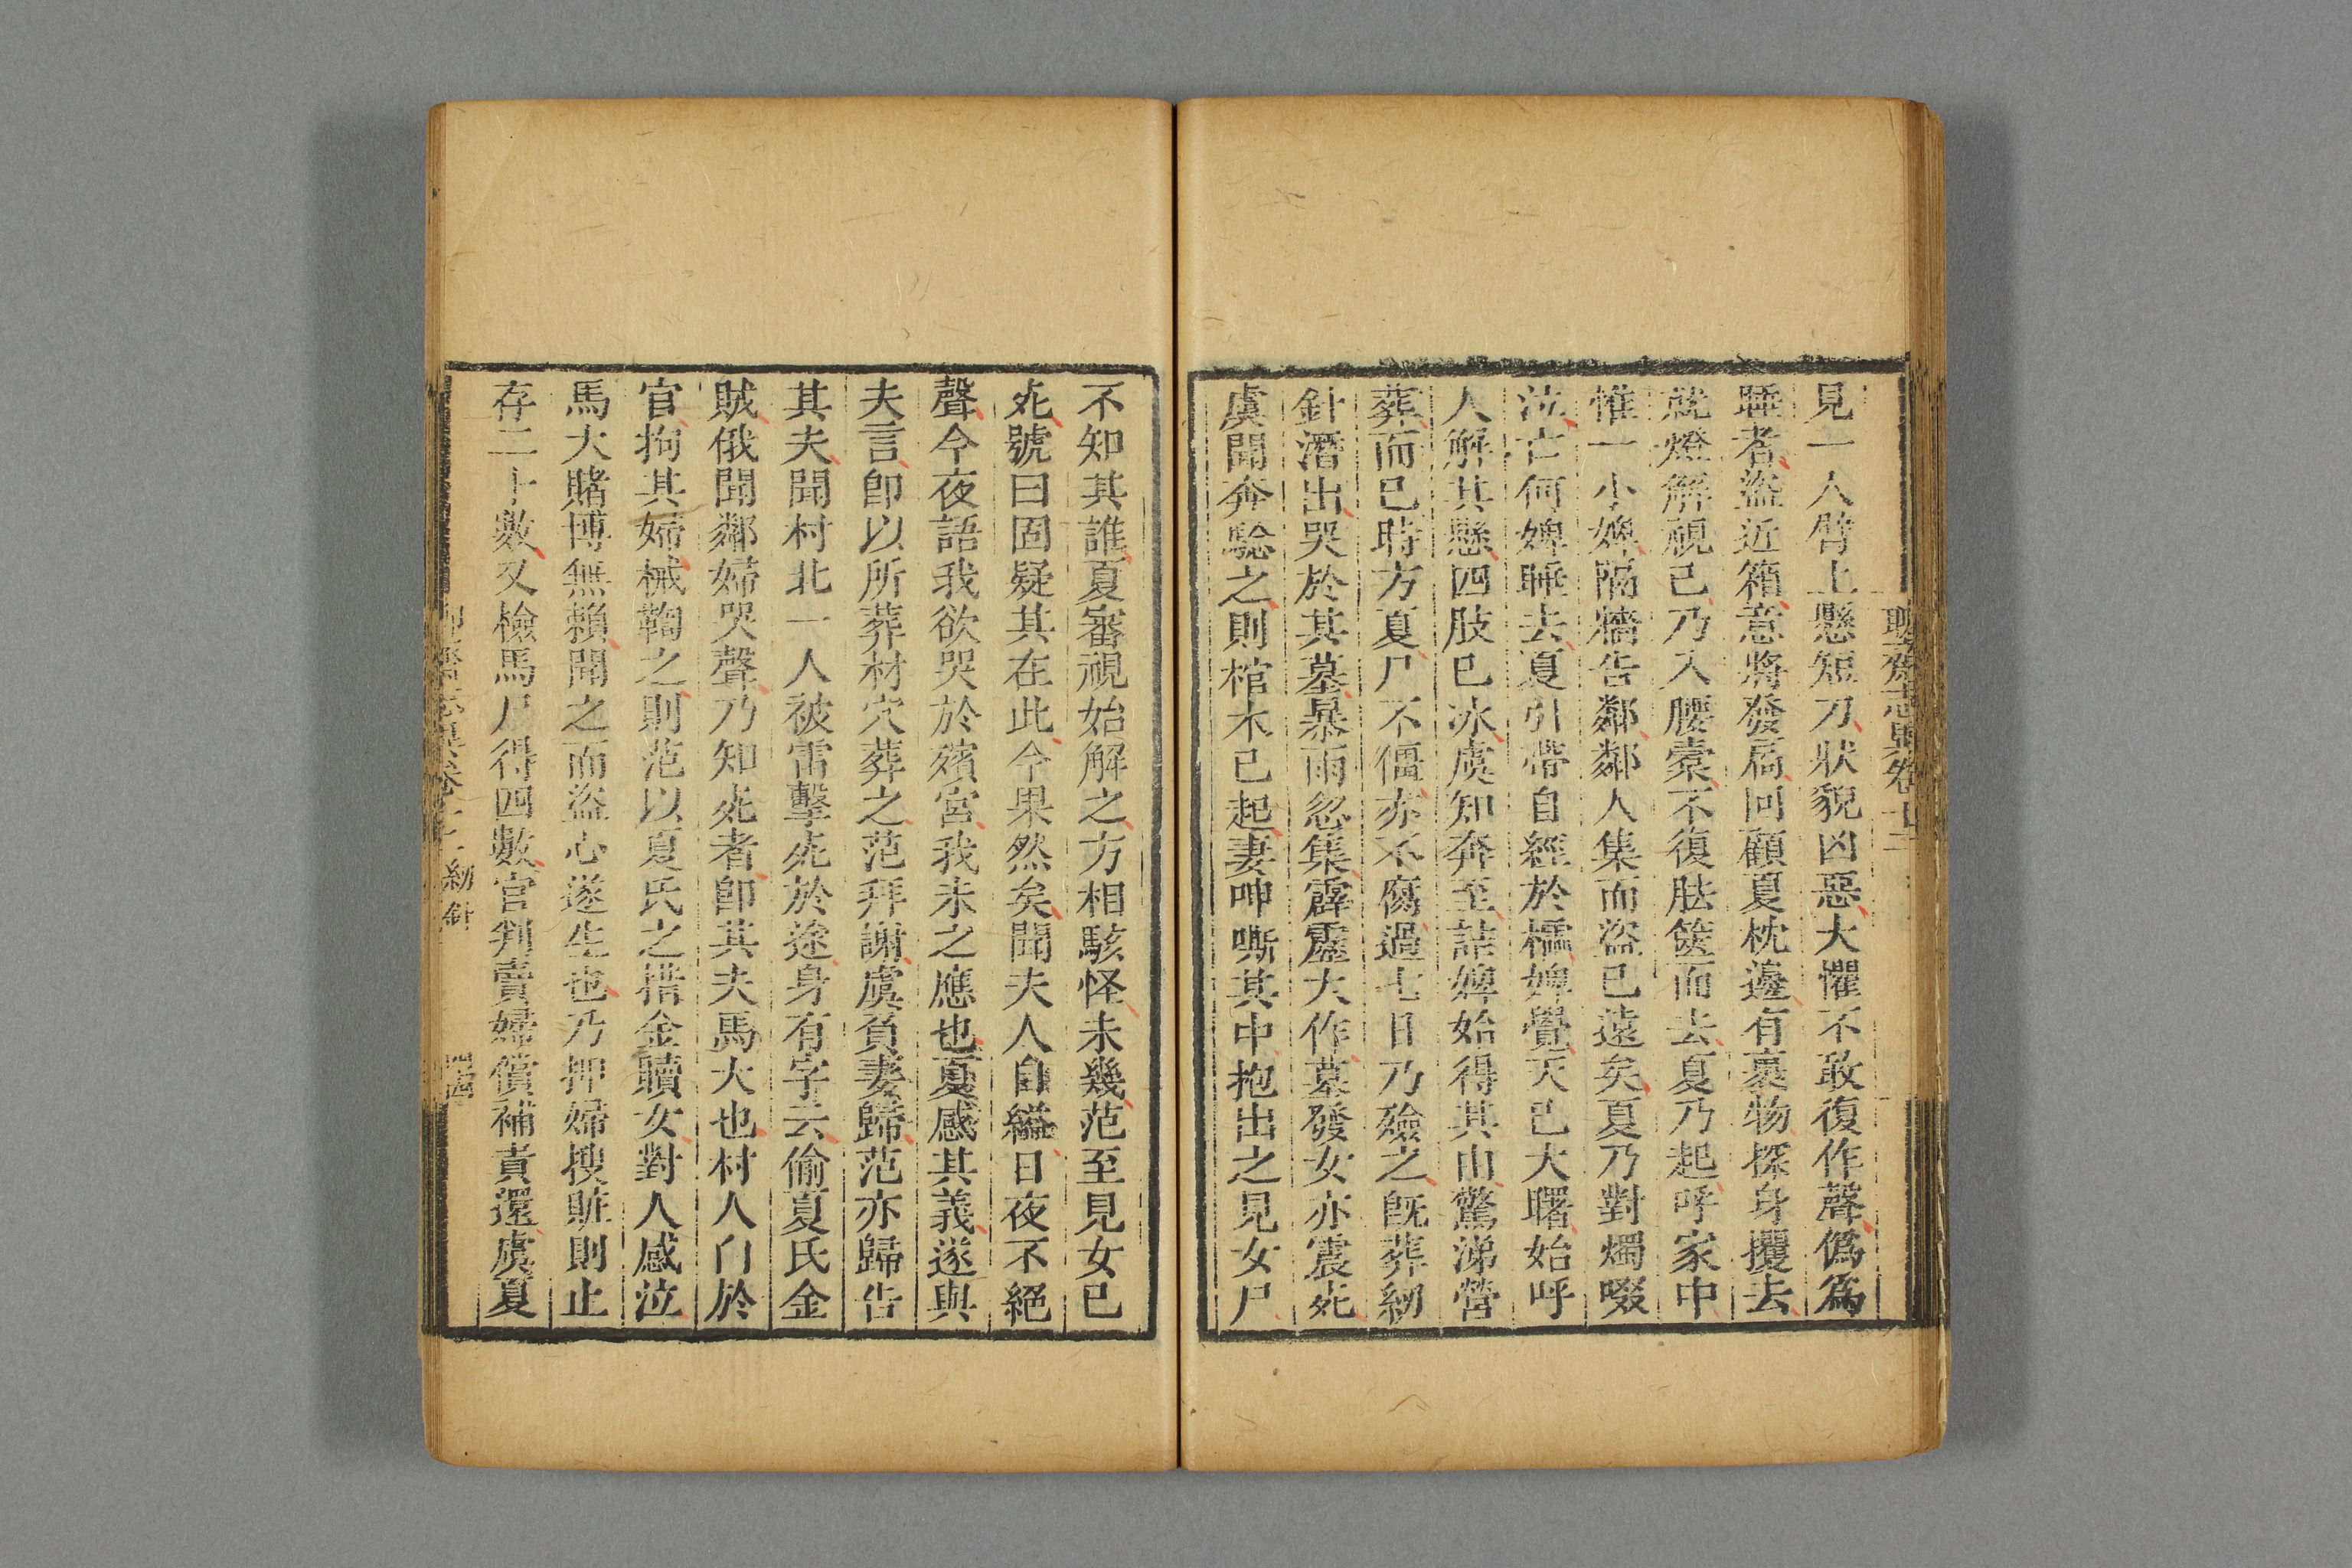 聊齋志異卷十二
見一人臂上懸短刀狀貌凶惡大懼不敢復作聲僞爲
睡者盜近箱意將發扃回顧夏枕邊有裹物探身攫去
就燈解視已乃入腰橐不復胠篋而去夏乃起呼家中
惟一小婢隔牆告鄰鄰人集而盜已遠矣夏乃對燭啜
泣亡何婢睡去夏引帶自經於櫺婢覺天已大曙始呼
人解其懸四肢已冰虞知奔至詰婢始得其由驚涕營
葬而已時方夏尸不僵亦不腐過七日乃殮之旣葬紉
針潛出哭於其墓暴雨忽集霹靂大作墓發女亦震死
虞聞奔騐之則棺木已起妻呻嘶其中抱出之見女尸
不知其誰夏審視始解之方相駭怪未幾范至見女已
死號曰固疑其在此今果然矣聞夫人自縊日夜不絕
聲今夜語我欲哭於殯宮我未之應也夏感其義遂與
夫言卽以所葬材穴葬之范拜謝虞負妻歸范亦歸告
其夫聞村北一人被雷擊死於途身有字云偷夏氏金
賊俄聞鄰婦哭聲乃知死者卽其夫馬大也村人白於
官拘其婦械鞫之則范以夏氏之措金贖女對人感泣
馬大賭博無賴聞之而盜心遂生也乃押婦搜贓則止
存二十數又檢馬尸得四數官判賣婦償補責還虞夏
紉針